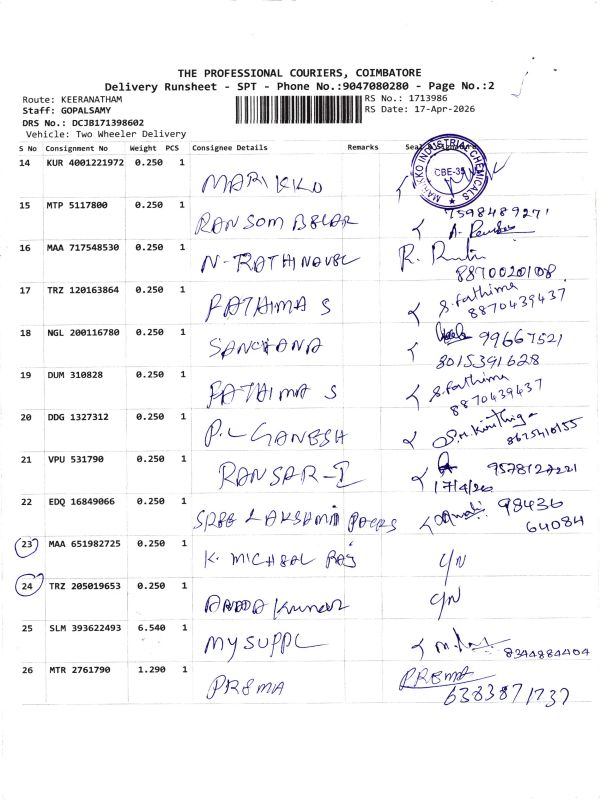 THE PROFESSIONAL COURIERS, COIMBATORE
Delivery Runsheet - SPT - Phone No.:9047080280 - Page No.:2
Route: KEERANATHAM
RS No.: 1713986
Staff: GOPALSAMY
RS Date: 17-Apr-2026
DRS No.: DCJB171398602
Vehicle: Two Wheeler Delivery
S No Consignment No Weight PCS Consignee Details Remarks
14 KUR 4001221972 0.250 1 MARIKKO
CBE-35
15 MTP 5117800 0.250 1 7598489271
RANSOM
16 MAA 717548530 0.250 1 N-RATHINAVEL R.
8870020108
17 TRZ 120163864 0.250 1 FATHIMA S S.fathima
8870439437
18 NGL 200116780 0.250 1 SANCHANA 99667521
8015391628
19 DUM 310828 0.250 1 FATHIMA S S.fathima
8870439437
20 DDG 1327312 0.250 1 P.L GANESH
21 VPU 531790 0.250 1 RANSAR-I
17/4/26
22 EDQ 16849066 0.250 1 SREE LAKSHMI PACKS 98436
64084
23 MAA 651982725 0.250 1 K. MICHEAL RAJ C/N
24 TRZ 205019653 0.250 1 Kumar C/N
25 SLM 393622493 6.540 1 MY SUPPL
8344884404
26 MTR 2761790 1.290 1 PREMA PREMA
6383871737